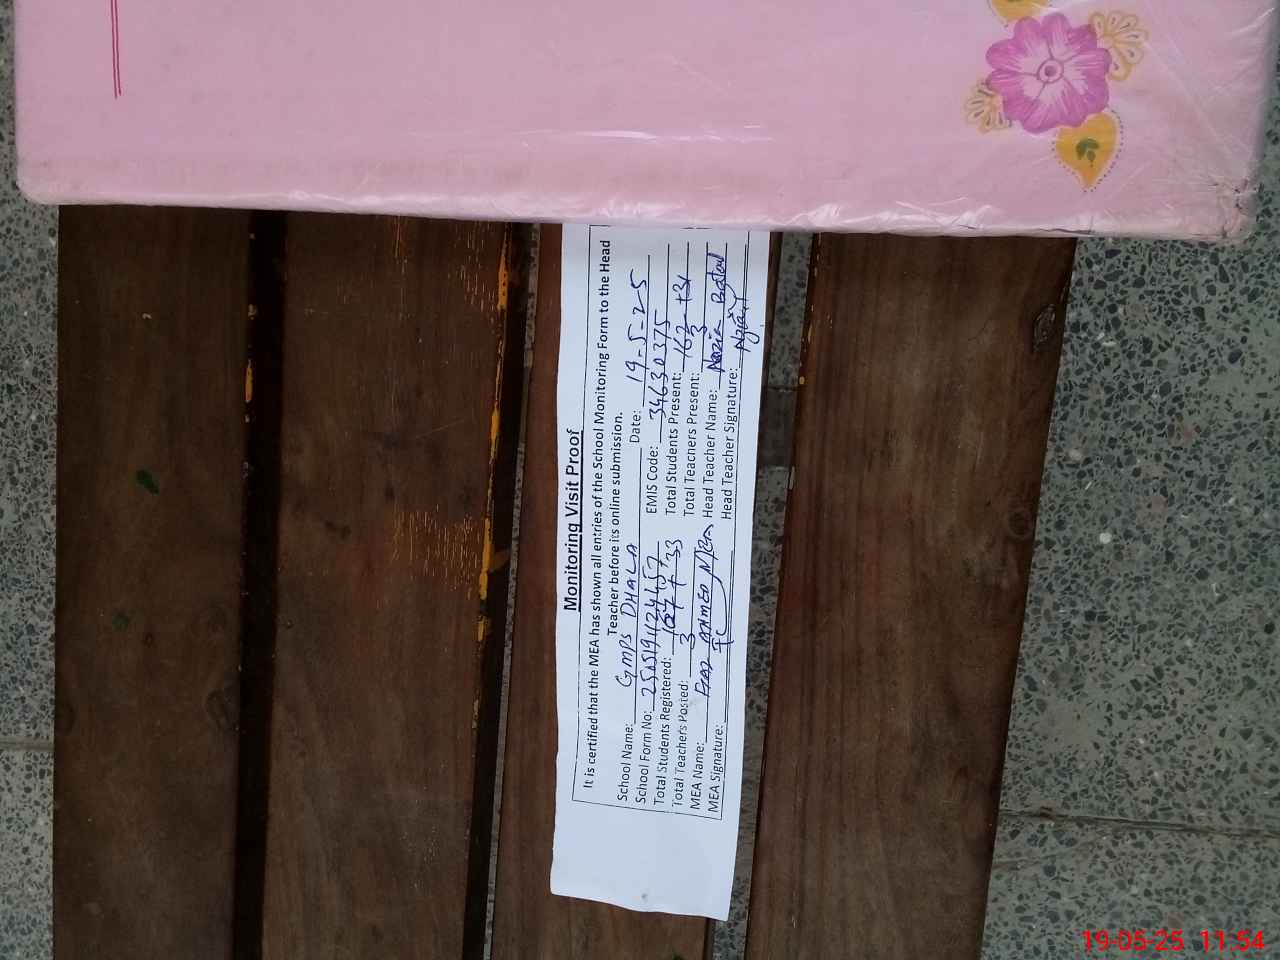 Monitoring Visit Proof
It is certified that the MEA has shown all entries of the School Monitoring Form to the Head
Teacher before its online submission.
School Name: GMPS DHALA Date: 19-5-25
School Form No: EMIS Code: 34630375
Total Students Registered: + 33 Total Students Present: +31
Total Teachers Posted: 3 Total Teachers Present: 3
MEA Name: AHMED Head Teacher Name: Nazia Batool
MEA Signature: Head Teacher Signature:
19-05-25 11:54